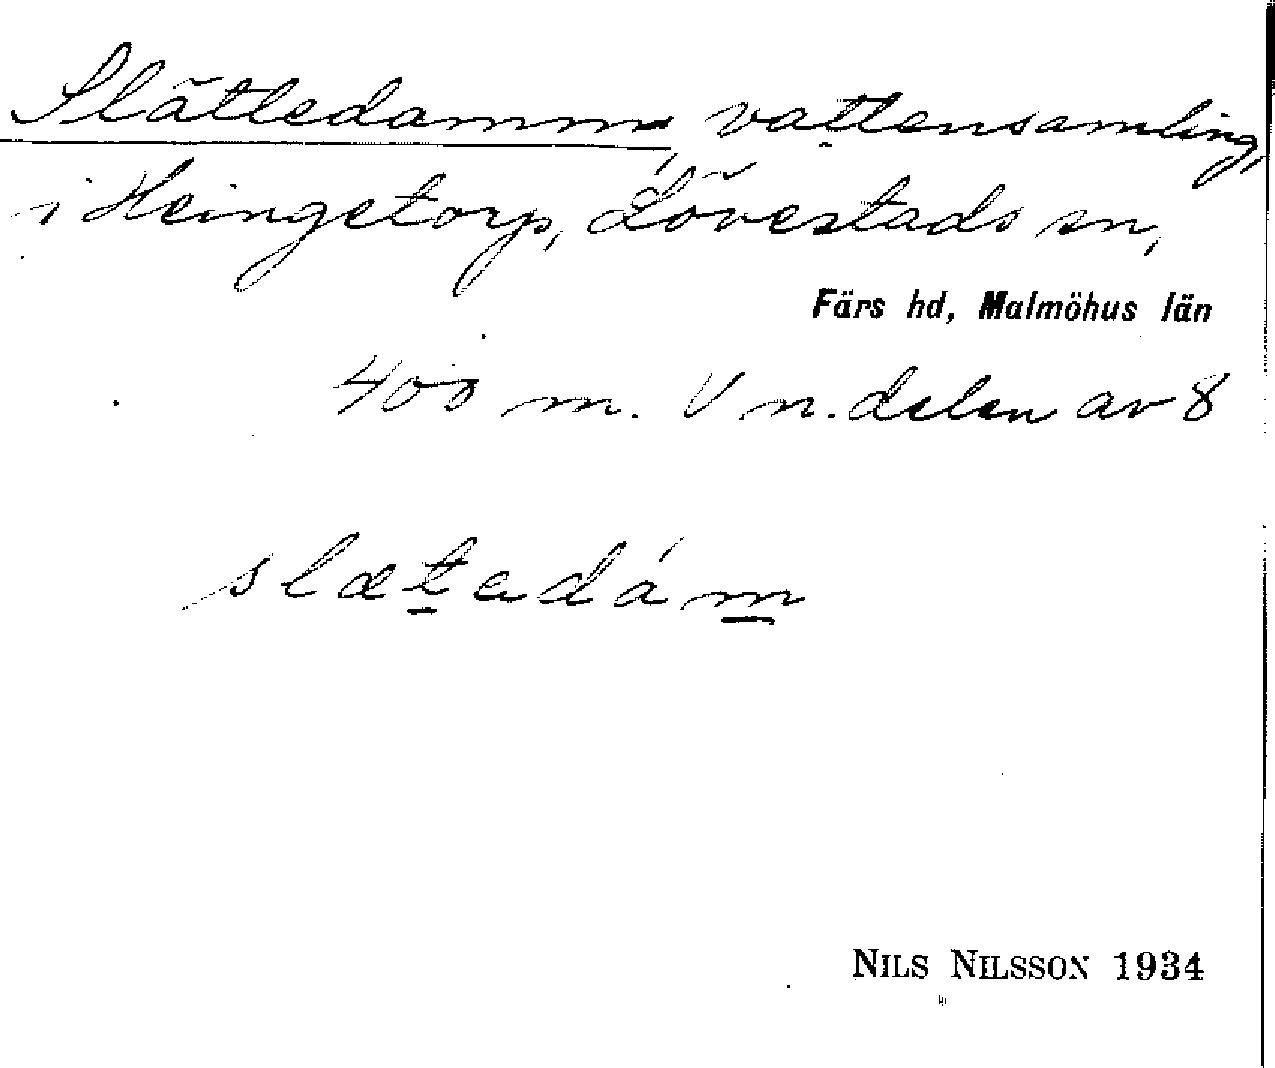 Slättedamm, vattensamling,
i Heingetorp, Lövestads sn,
Färs hd, Malmöhus län
400 m. V n. delen av 8
slætadám
NILS NILSSON 1934